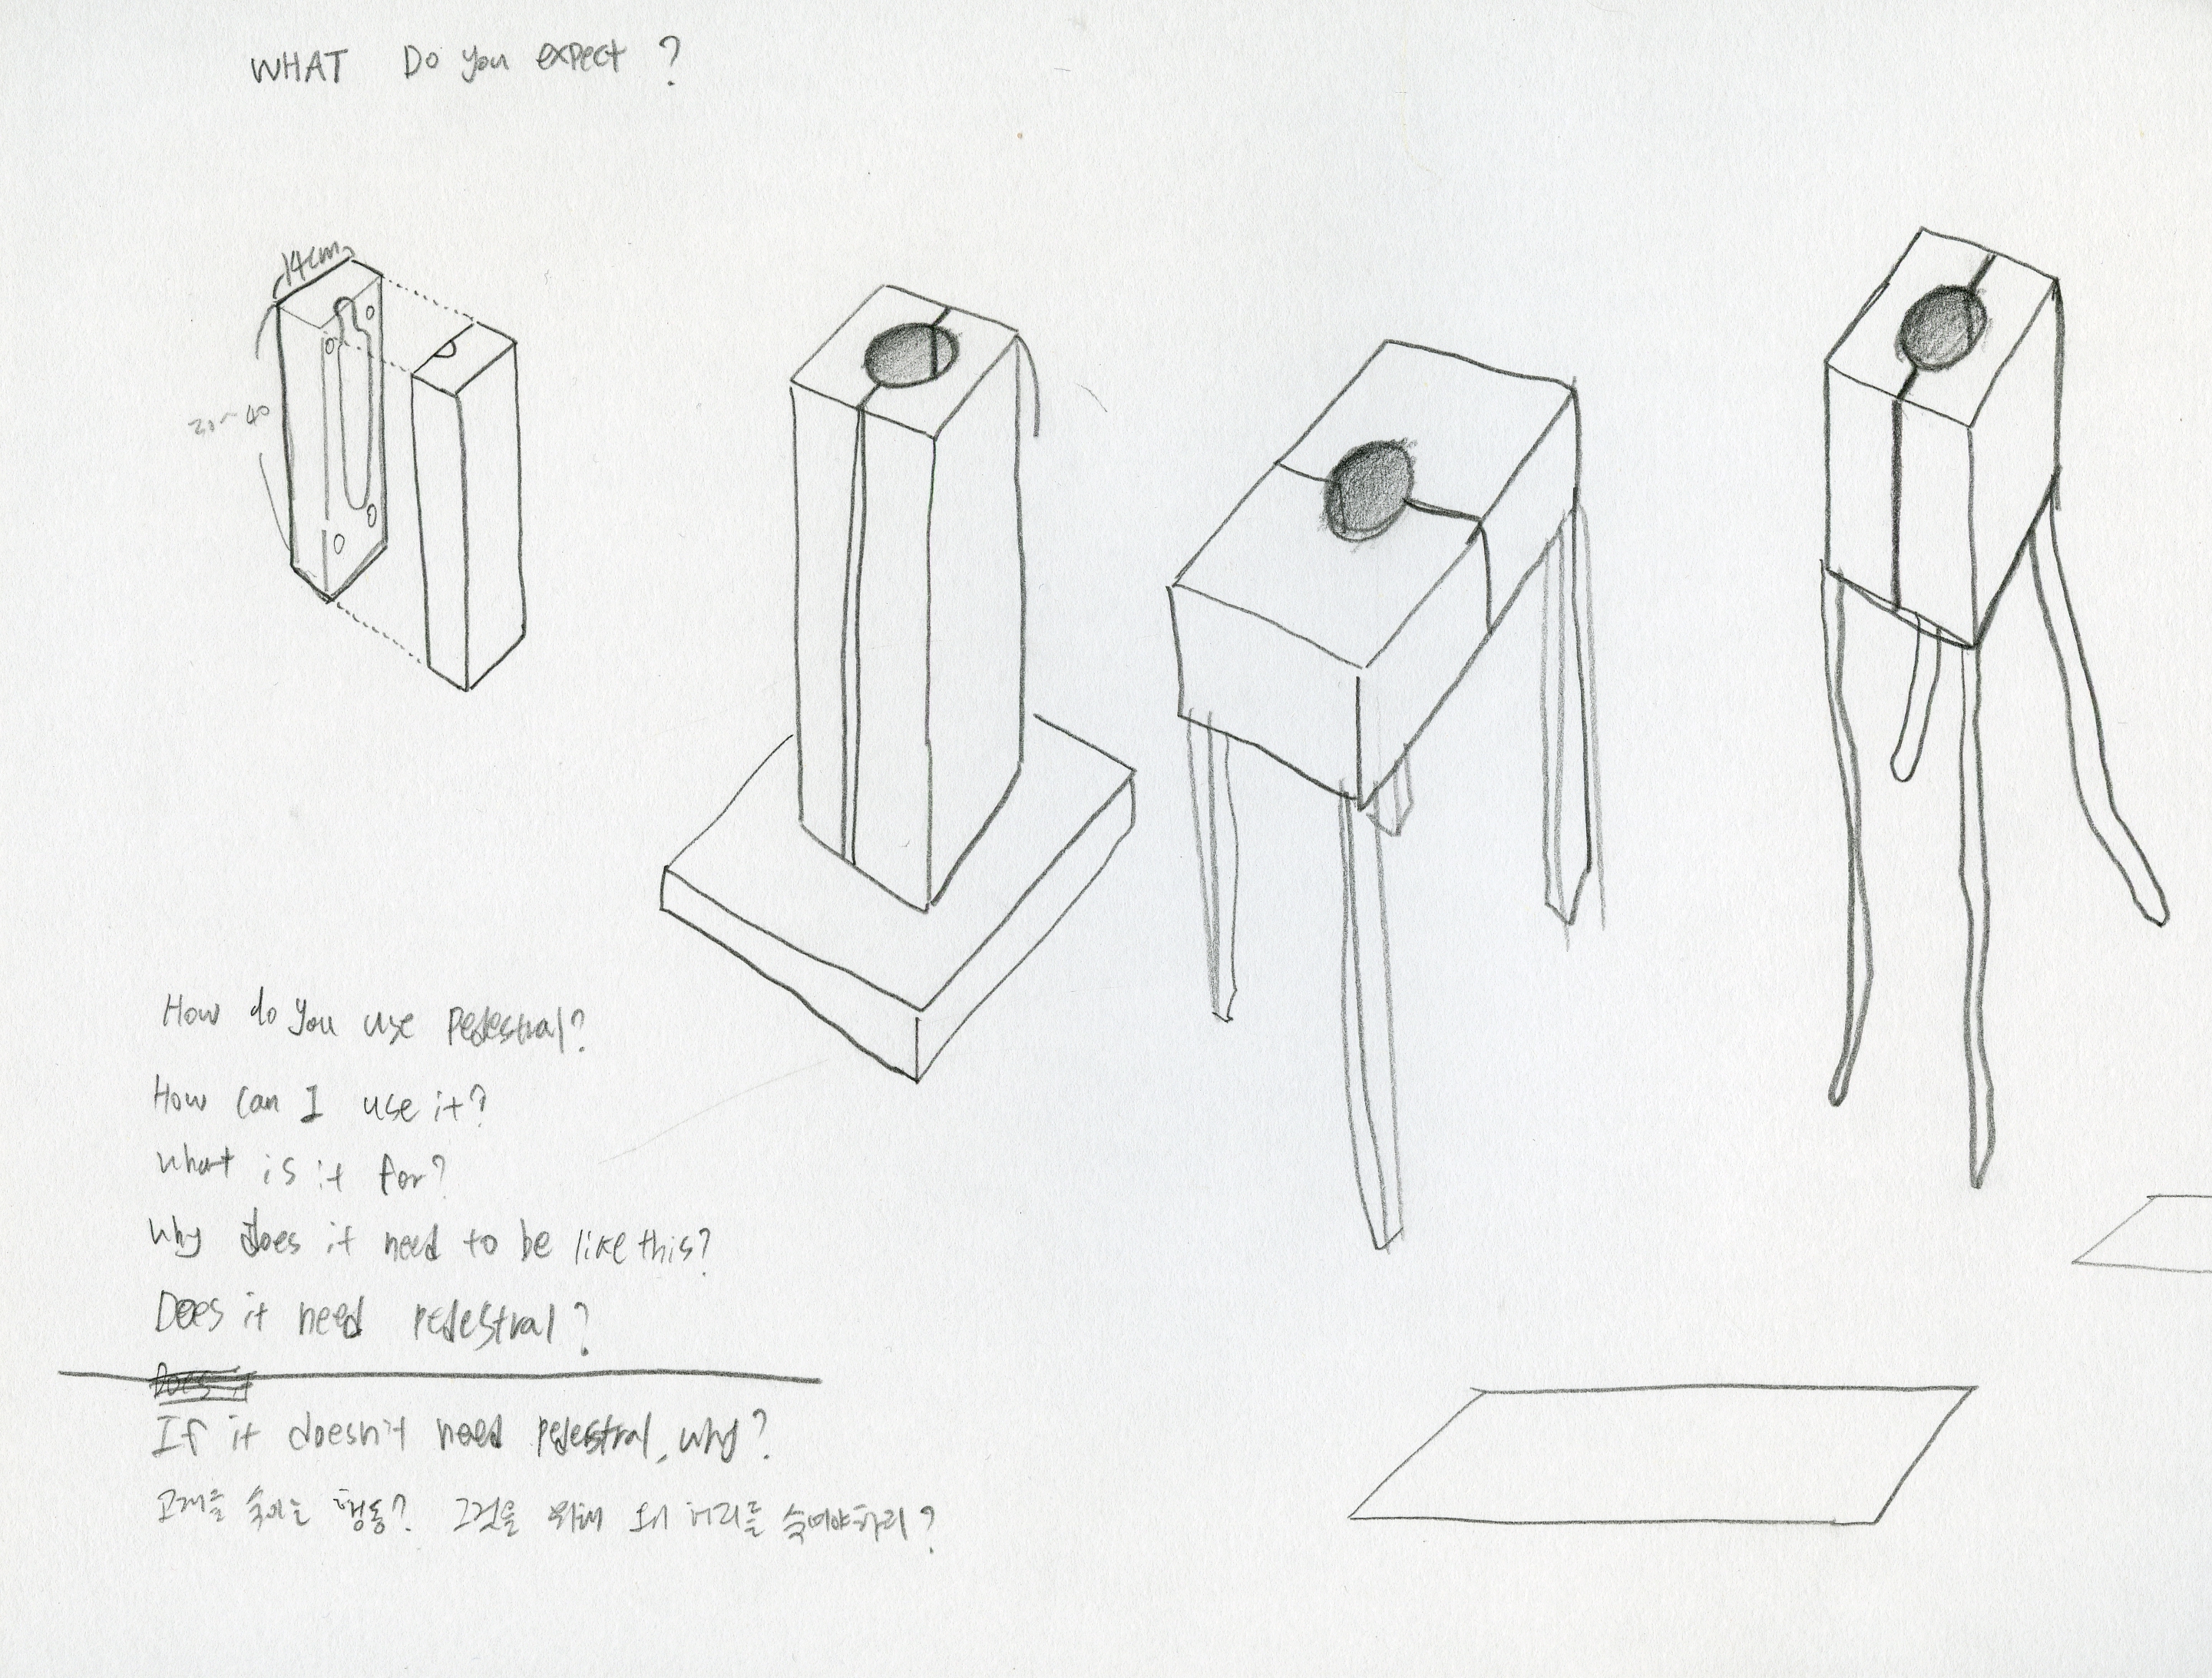 WHAT Do you expect ?
14cm
20~40
How do you use pedestral?
How can I use it?
what is it for?
why does it need to be like this?
Does it need pedestral?
Does it
If it doesn't need pedestral, why?
고개를 숙이는 행동? 그것을 위해 왜 머리를 숙여야하리?